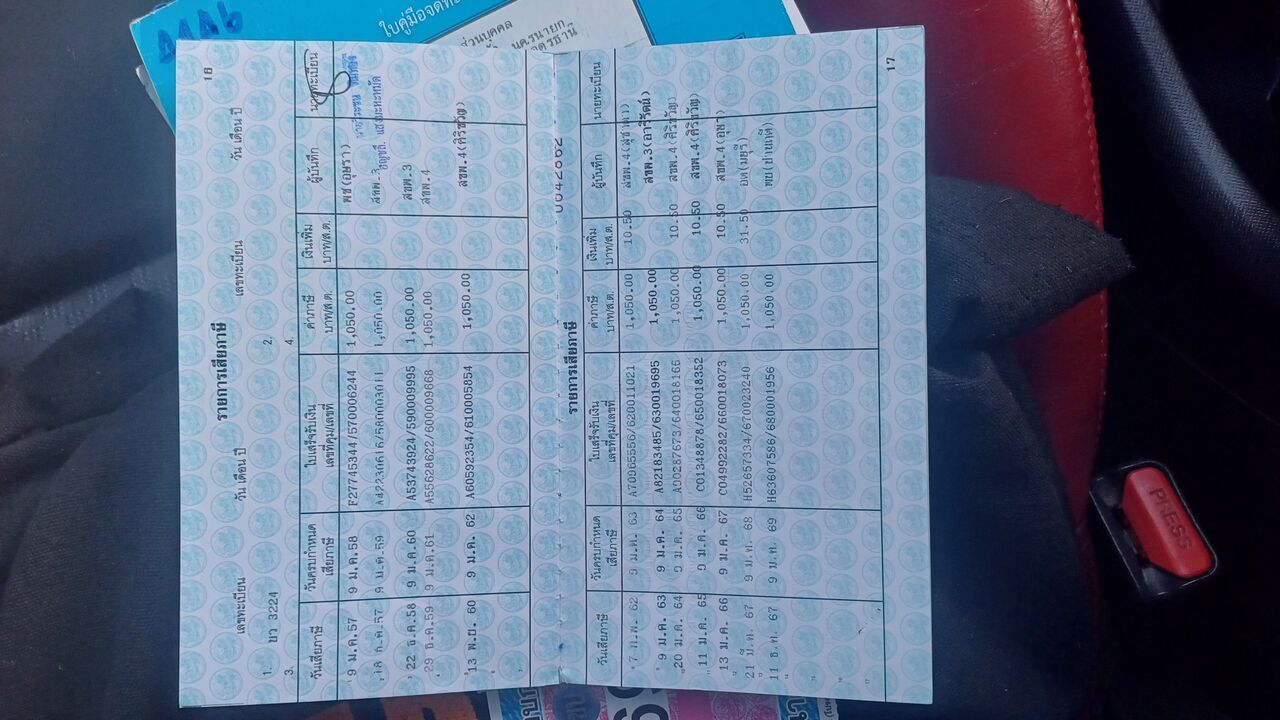 ใบคู่มือจดทะ
ส่วนบุคคล
นครนายก
16
รายการเสียภาษี
เลขทะเบียน วัน เดือน ปี เลขทะเบียน วัน เดือน ปี
1. ษา 3224 2.
3. 4.
วันเสียภาษี วันครบกำหนดเสียภาษี ใบเสร็จรับเงิน เลขที่คุม/เลขที่ ค่าภาษี บาท/ส.ต. เงินเพิ่ม บาท/ส.ต. ผู้บันทึก นายทะเบียน
9 ม.ค.57 9 ม.ค.58 F27745344/570006244 1,050.00 พช(อุษรา)
18 ก.ค.57 9 ม.ค.59 A42230616/580003011 1,050.00 สขพ.3
22 ธ.ค.58 9 ม.ค.60 A53743924/590009995 1,050.00 สขพ.3
29 ธ.ค.59 9 ม.ค.61 A55628622/600009668 1,050.00 สขพ.4
13 พ.ย. 60 9 ม.ค. 62 A60592354/610005854 1,050.00 สขพ.4(ศิริขวัญ)
0042862
รายการเสียภาษี
วันเสียภาษี วันครบกำหนดเสียภาษี ใบเสร็จรับเงิน เลขที่คุม/เลขที่ ค่าภาษี บาท/ส.ต. เงินเพิ่ม บาท/ส.ต. ผู้บันทึก นายทะเบียน
7 ก.พ. 62 9 ม.ค. 63 A70965556/620011021 1,050.00 10.50 สขพ.4
9 ม.ค. 63 9 ม.ค. 64 A82183485/630019695 1,050.00 สขพ.3(อารีรัตน์)
20 ม.ค. 64 9 ม.ค. 65 A90287673/640018166 1,050.00 10.50 สขพ.4(ศิริขวัญ)
11 ม.ค. 65 9 ม.ค. 66 C01348878/650018352 1,050.00 10.50 สขพ.4(ศิริขวัญ)
13 ม.ค. 66 9 ม.ค. 67 C04992282/660018073 1,050.00 10.50 สขพ.4(อุษา)
21 มี.ค. 67 9 ม.ค. 68 H52657334/670023240 1,050.00 31.50 อท(มยุรี)
11 ธ.ค. 67 9 ม.ค. 69 H63607586/680001956 1,050.00
17
PRESS